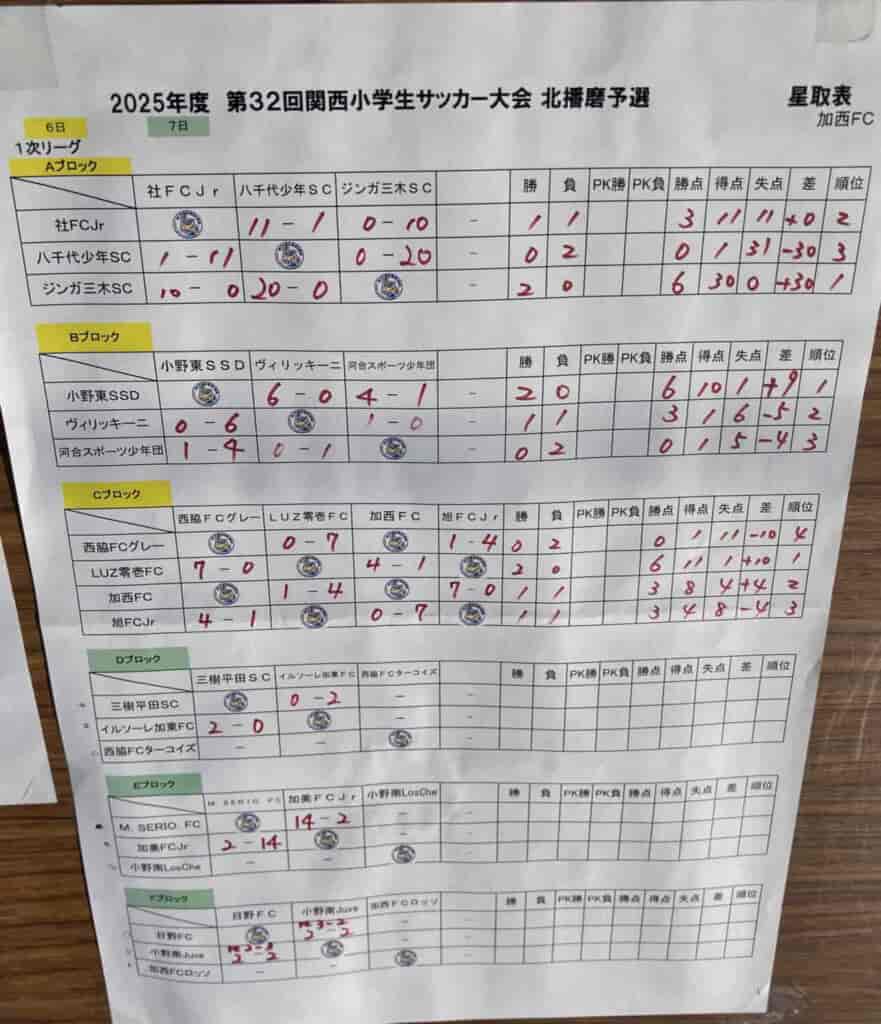 2025年度 第32回関西小学生サッカー大会 北播磨予選 星取表
加西FC
6日 7日
1次リーグ
Aブロック
社FCJr 八千代少年SC ジンガ三木SC 勝 負 PK勝 PK負 勝点 得点 失点 差 順位
社FCJr 11-1 0-10 - 1 1 3 11 11 +0 2
八千代少年SC 1-11 0-20 - 0 2 0 1 31 -30 3
ジンガ三木SC 10-0 20-0 - 2 0 6 30 0 +30 1
Bブロック
小野東SSD ヴィリッキーニ 河合スポーツ少年団 勝 負 PK勝 PK負 勝点 得点 失点 差 順位
小野東SSD 6-0 4-1 - 2 0 6 10 1 +9 1
ヴィリッキーニ 0-6 1-0 - 1 1 3 1 6 -5 2
河合スポーツ少年団 1-4 0-1 - 0 2 0 1 5 -4 3
Cブロック
西脇FCグレー LUZ零壱FC 加西FC 旭FCJr 勝 負 PK勝 PK負 勝点 得点 失点 差 順位
西脇FCグレー 0-7 1-4 0 2 0 1 11 -10 4
LUZ零壱FC 7-0 4-1 2 0 6 11 1 +10 1
加西FC 1-4 7-0 1 1 3 8 4 +4 2
旭FCJr 4-1 0-7 1 1 3 4 8 -4 3
Dブロック
三樹平田SC イルソーレ加東FC 西脇FCターコイズ 勝 負 PK勝 PK負 勝点 得点 失点 差 順位
三樹平田SC 0-2 - -
イルソーレ加東FC 2-0 - -
西脇FCターコイズ - - -
Eブロック
M. SERIO. FC 加美FCJr 小野南LosChe 勝 負 PK勝 PK負 勝点 得点 失点 差 順位
M. SERIO. FC 14-2 - -
加美FCJr 2-14 - -
小野南LosChe - - -
Fブロック
日野FC 小野南Juve 加西FCロッソ 勝 負 PK勝 PK負 勝点 得点 失点 差 順位
日野FC PK 3-2 2 2 - -
小野南Juve PK 2-3 2 2 - -
加西FCロッソ - - -